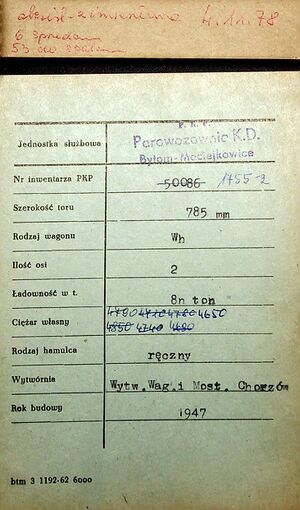 4.11.78
6 sprzedan
53 do
P. K. P.
Parowozownia K.D.
Bytom-Maciejkowice
Jednostka służbowa
Nr inwentarza PKP 50086 1455-2
Szerokość toru 785 mm
Rodzaj wagonu Wh
Ilość osi 2
Ładowność w t. 8n ton
Ciężar własny 4780 4810 4760 4650
4850 4740 4680
Rodzaj hamulca ręczny
Wytwórnia Wytw.Wag.i Most. Chorzów
Rok budowy 1947
btm 3 1192-62 6000